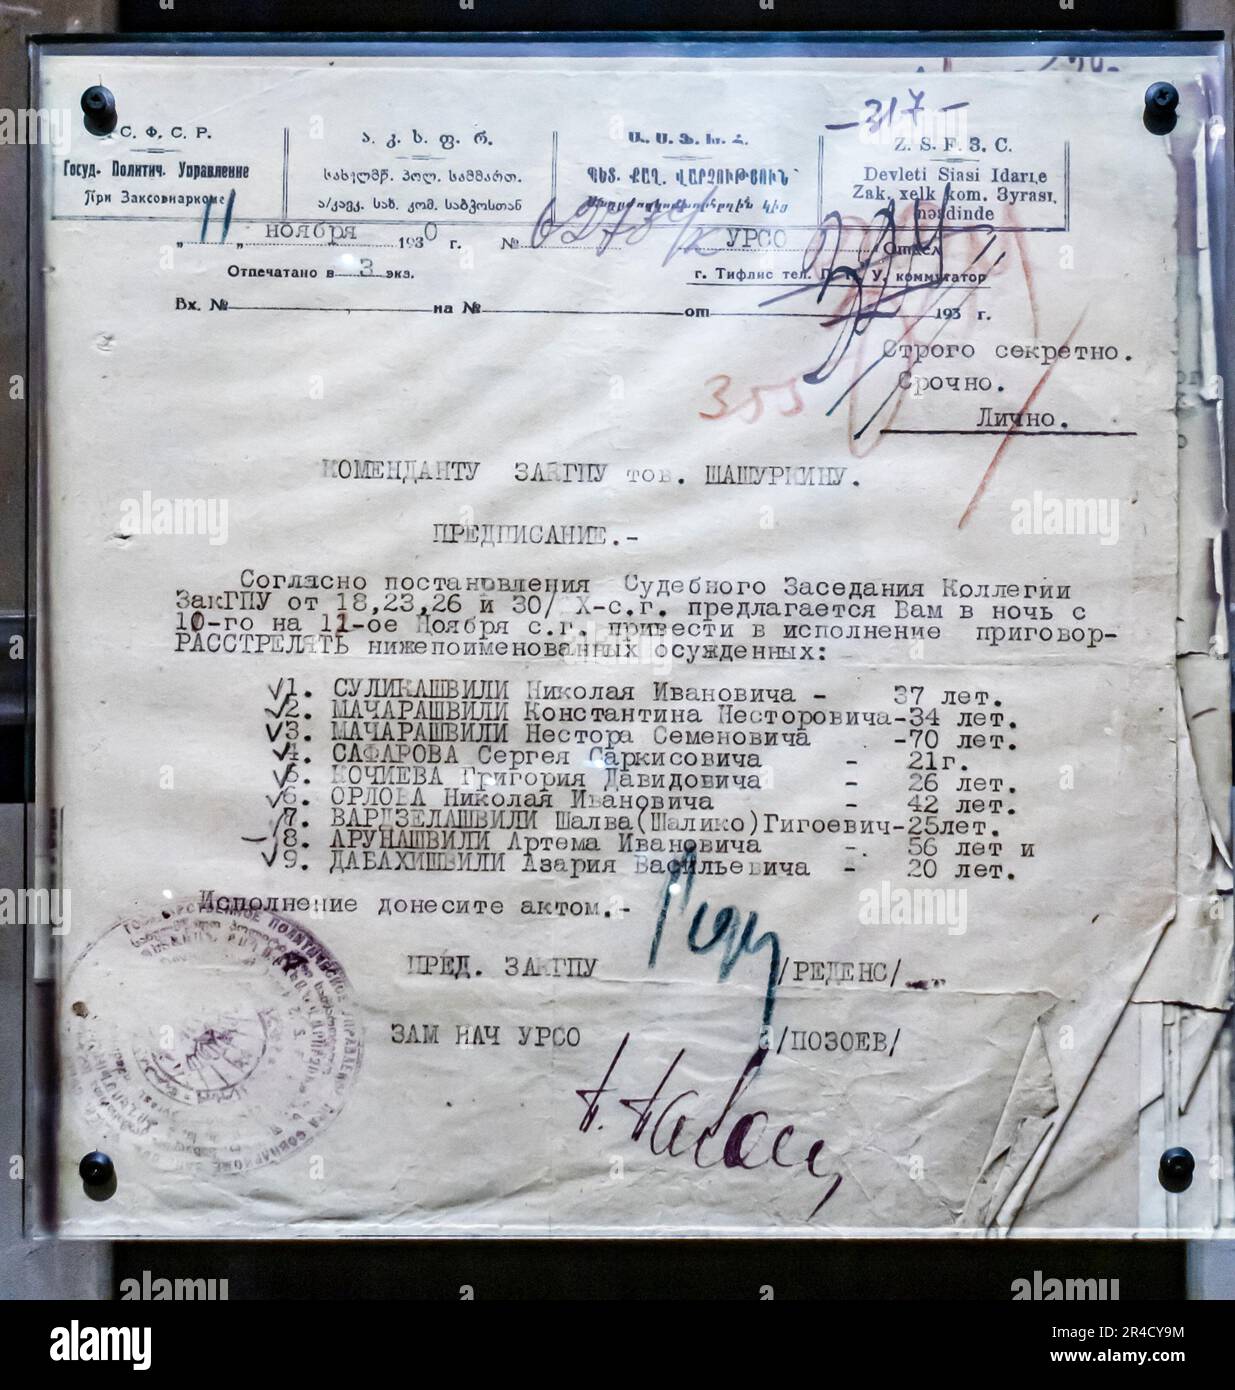 -317-
С. Ф. С. Р.
Госуд. Политич. Управление
При Заксовнаркоме
ა. კ. ს. ფ. რ.
სახელმწ. პოლ. სამმართ.
ა/კავკ. სახ. კომ. საბჭოსთან
Ա. Ս. Ֆ. Խ. Հ.
ՊԵՏ. ՔԱՂ. ՎԱՐՉՈՒԹՅՈՒՆ
Z. S. F. З. C.
Devleti Siasi Idarıe
Zak, xelk kom. Зyrası,
nəzdinde
„ 11 „ ноября 1930 г. № УРСО Отдел
Отпечатано в 3 экз.
г. Тифлис тел. Г. П. У. коммутатор
Вх. № на № от 193 г.
Строго секретно.
Срочно.
Лично.
355
КОМЕНДАНТУ ЗАКГПУ тов. ШАШУРКИНУ.
ПРЕДПИСАНИЕ.-
Согласно постановления Судебного Заседания Коллегии
ЗакГПУ от 18,23,26 и 30/ Х-с.г. предлагается Вам в ночь с
10-го на 11-ое Ноября с.г. привести в исполнение приговор-
РАССТРЕЛЯТЬ нижепоименованных осужденных:
1. СУЛИКАШВИЛИ Николая Ивановича - 37 лет.
2. МАЧАРАШВИЛИ Константина Несторовича-34 лет.
3. МАЧАРАШВИЛИ Нестора Семеновича -70 лет.
4. САФАРОВА Сергея Саркисовича - 21г.
5. КОЧИЕВА Григория Давидовича - 26 лет.
6. ОРЛОВА Николая Ивановича - 42 лет.
7. ВАРДЗЕЛАШВИЛИ Шалва(Шалико)Гигоевич-25лет.
8. АРУНАШВИЛИ Артема Ивановича -. 56 лет и
9. ДАБАХИШВИЛИ Азария Васильевича - 20 лет.
Исполнение донесите актом.-
ПРЕД. ЗАКГПУ /РЕДЕНС/
ЗАМ НАЧ УРСО /ПОЗОЕВ/
ГОСУДАРСТВЕННОЕ ПОЛИТИЧЕСКОЕ УПРАВЛЕНИЕ ПРИ СОВНАРКОМЕ
alamy
Image ID: 2R4CY9M
www.alamy.com